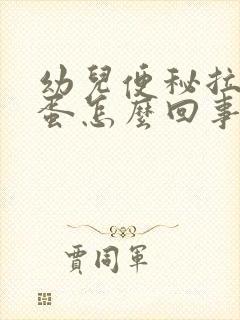 幼兒便秘拉
蛋怎麼回事
賈同軍